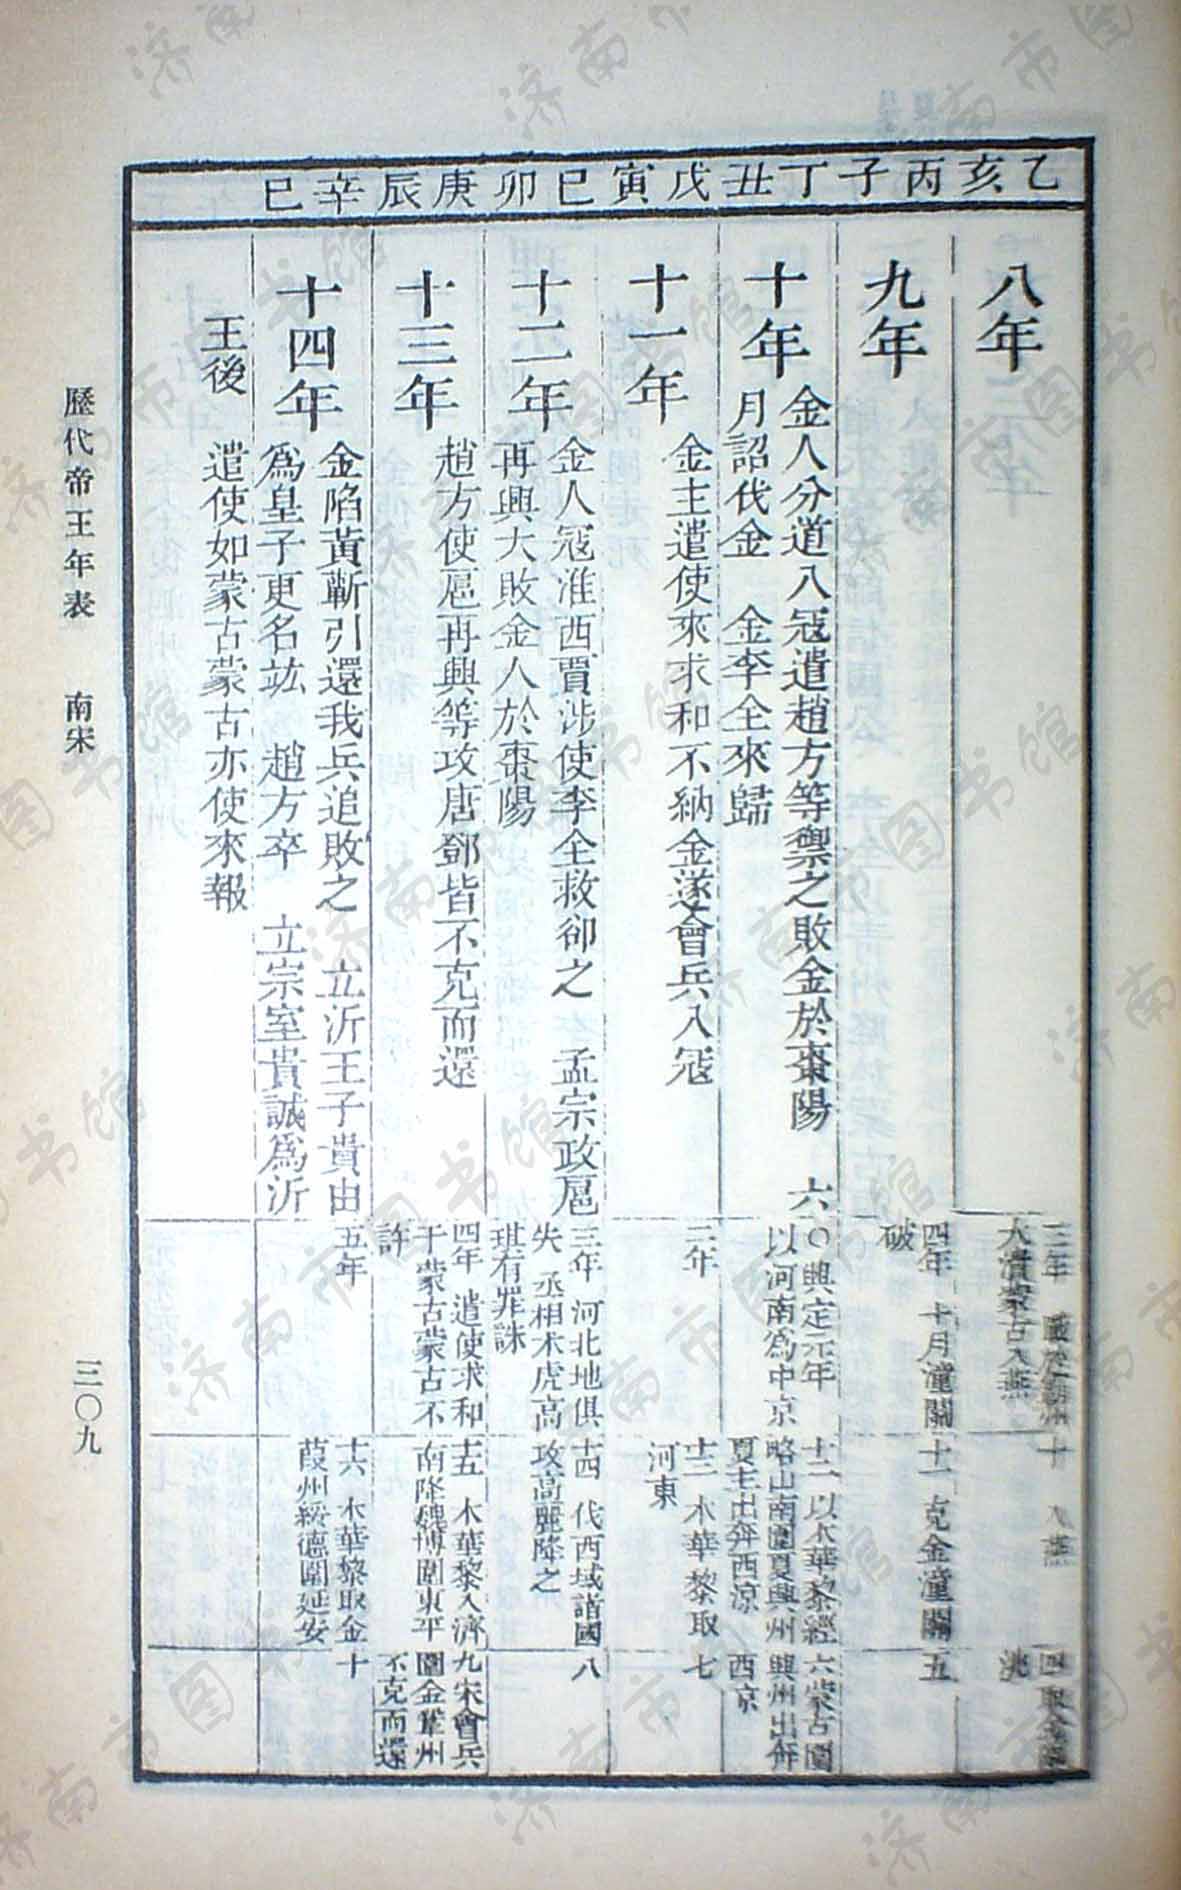 乙亥丙子丁丑戊寅巳卯庚辰辛巳
八年
三年
大潰蒙古入燕
十 入燕
四 取金
洮
九年
四年 十月潼關
破
十一 克金潼關
五
十年
金人分道入寇遣趙方等禦之敗金於棗陽 六
月詔伐金 金李全來歸
〇興定元年
以河南爲中京
十二 以木華黎經
略山南圍夏興州
夏主出奔西涼
六蒙古圍
興州出奔
西京
十一年
金主遣使來求和不納金遂會兵入寇
二年
十三 木華黎取
河東
七
十二年
金人寇淮西賈涉使李全救卻之 孟宗政扈
再興大敗金人於棗陽
三年 河北地俱
失 丞相术虎高
琪有罪誅
十四 伐西域諸國
攻高麗降之
八
十三年
趙方使扈再興等攻唐鄧皆不克而還
四年 遣使求和
于蒙古蒙古不
許
十五 木華黎入濟
南降魏博圍東平
九宋會兵
圍金鞏州
不克而還
十四年
金陷黃蘄引還我兵追敗之 立沂王子貴由
爲皇子更名竑 趙方卒 立宗室貴誠爲沂
王後 遣使如蒙古蒙古亦使來報
五年
十六 木華黎取金
葭州綏德圍延安
十
歷代帝王年表 南宋
三〇九
济南市图书馆